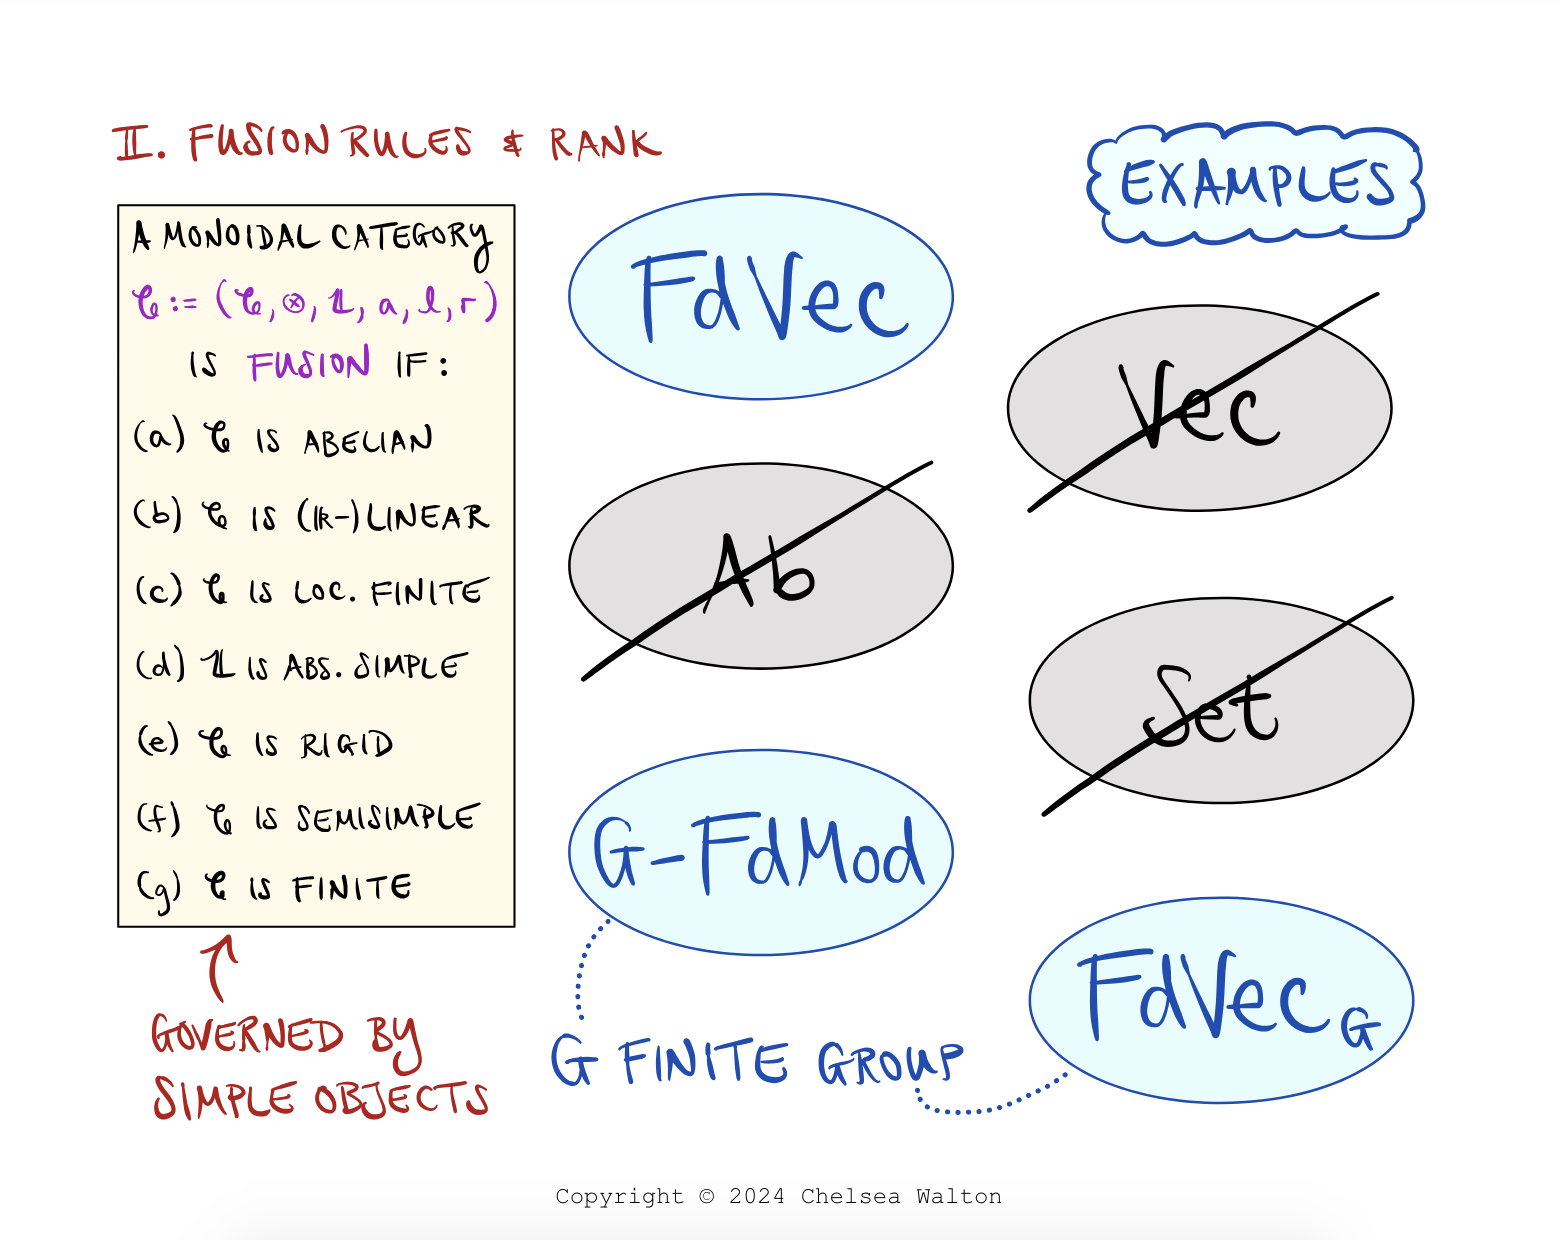 II. FUSION RULES & RANK
EXAMPLES
A MONOIDAL CATEGORY
𝒞 := (𝒞, ⊗, 𝟙, a, l, r)
IS FUSION IF:
(a) 𝒞 IS ABELIAN
(b) 𝒞 IS (𝕜-)LINEAR
(c) 𝒞 IS LOC. FINITE
(d) 𝟙 IS ABS. SIMPLE
(e) 𝒞 IS RIGID
(f) 𝒞 IS SEMISIMPLE
(g) 𝒞 IS FINITE
GOVERNED BY
SIMPLE OBJECTS
FdVec
Vec
Ab
Set
G-FdMod
FdVec_G
G FINITE GROUP
Copyright © 2024 Chelsea Walton